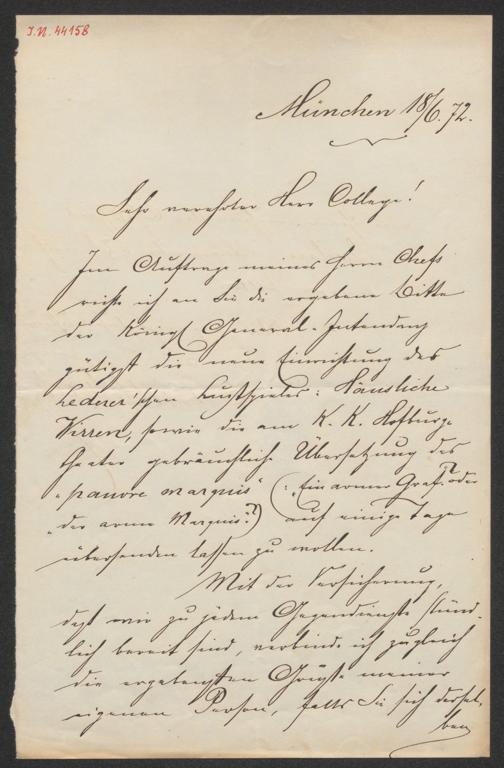 I.N. 44158
München 18/6. 72.
Sehr verehrter Herr College!
Im Auftrage meines Herrn Chefs
richte ich an Sie die ergebene Bitte
der Königl General-Intendanz
gütigst die neue Einrichtung des
Lederer'schen Lustspieles: Häusliche
Wirren, sowie die am K. K. Hofburg-
theater gebräuchliche Übersetzung des
„pauvre marquis" (: „Ein armer Graf"? oder
„der arme Marquis"?) auf einige Tage
übersenden lassen zu wollen.
Mit der Versicherung,
daß wir zu jedem Gegendienste stünd-
lich bereit sind, verbinde ich zugleich
die ergebensten Grüße meiner
eigenen Person, falls Sie sich dersel-
ben